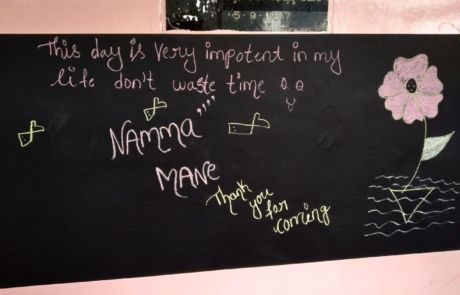 5-9
This day is very impotent in my
life don't waste time
NAMMA""
MANe
Thank
you
for
coming